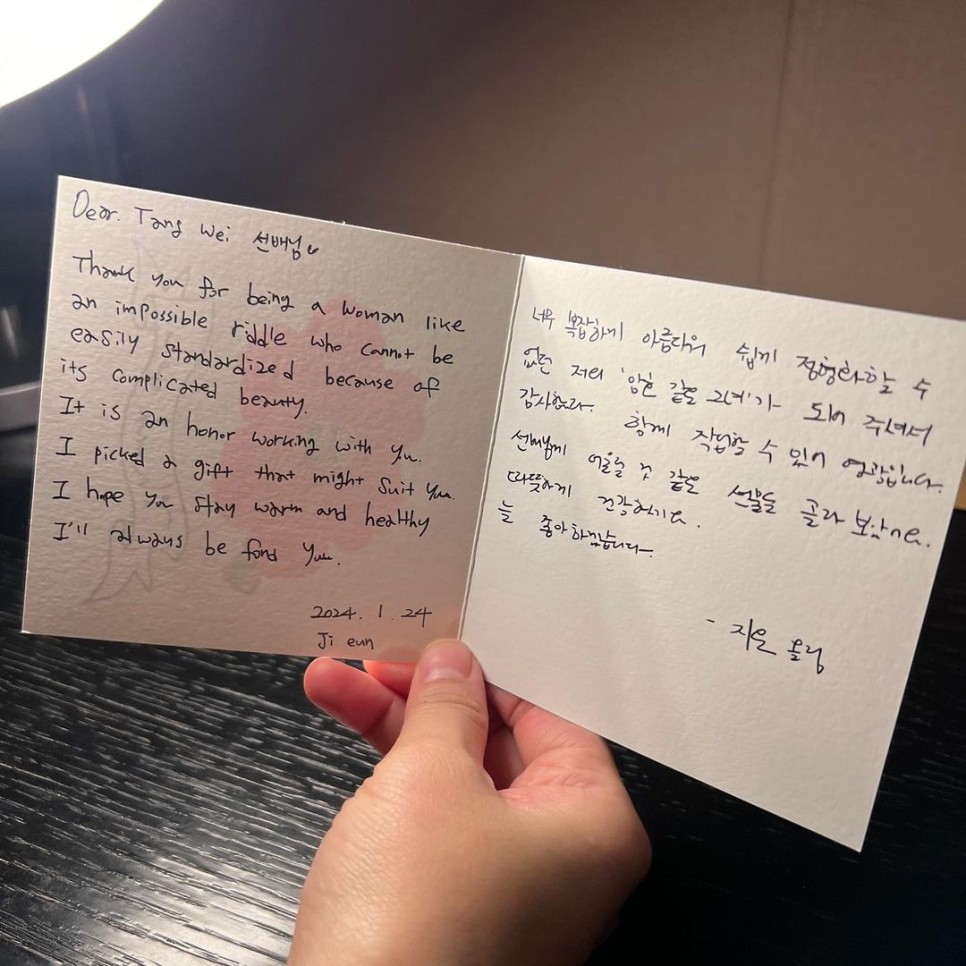 Dear. Tang Wei 선배님
Thank you for being a woman like
an impossible riddle who cannot be
easily standardized because of
its complicated beauty.
It is an honor working with you.
I picked a gift that might suit you.
I hope you stay warm and healthy
I'll always be fond you.
2024. 1. 24
Ji eun
너무 복잡하게 아름다워 쉽게 정형화할 수
없던 저의 '암호 같은 그녀'가 되어 주셔서
감사합니다. 함께 작업할 수 있어 영광입니다.
선배님께 어울릴 것 같은 선물을 골라 보았어요.
따뜻하게 건강하시고.
늘 좋아하겠습니다.
- 지은 올림